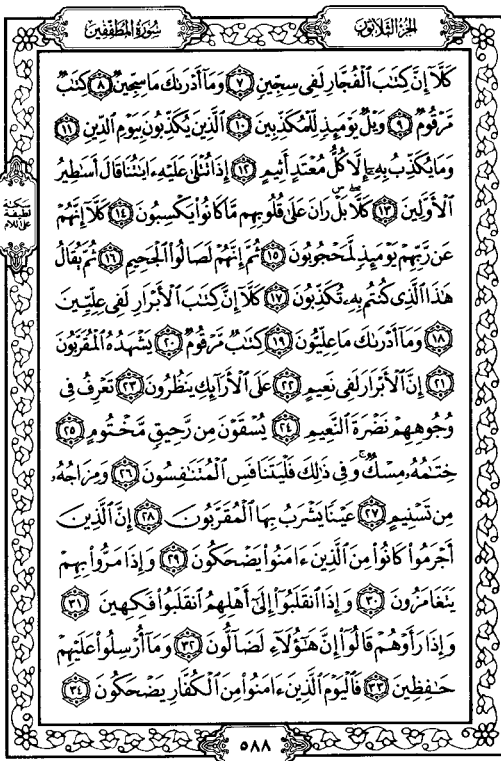 سُورَةُ المُطَفِّفِين
الجُزْءُ الثَّلَاثُونَ
كَلَّآ إِنَّ كِتَٰبَ ٱلْفُجَّارِ لَفِى سِجِّينٍ ٧ وَمَآ أَدْرَىٰكَ مَا سِجِّينٌ ٨ كِتَٰبٌ
مَّرْقُومٌ ٩ وَيْلٌ يَوْمَئِذٍ لِّلْمُكَذِّبِينَ ١٠ ٱلَّذِينَ يُكَذِّبُونَ بِيَوْمِ ٱلدِّينِ ١١
وَمَا يُكَذِّبُ بِهِۦٓ إِلَّا كُلُّ مُعْتَدٍ أَثِيمٍ ١٢ إِذَا تُتْلَىٰ عَلَيْهِ ءَايَٰتُنَا قَالَ أَسَٰطِيرُ
ٱلْأَوَّلِينَ ١٣ كَلَّا ۖ بَلْ ۜ رَانَ عَلَىٰ قُلُوبِهِم مَّا كَانُوا۟ يَكْسِبُونَ ١٤ كَلَّآ إِنَّهُمْ
عَن رَّبِّهِمْ يَوْمَئِذٍ لَّمَحْجُوبُونَ ١٥ ثُمَّ إِنَّهُمْ لَصَالُوا۟ ٱلْجَحِيمِ ١٦ ثُمَّ يُقَالُ
هَٰذَا ٱلَّذِى كُنتُم بِهِۦ تُكَذِّبُونَ ١٧ كَلَّآ إِنَّ كِتَٰبَ ٱلْأَبْرَارِ لَفِى عِلِّيِّينَ
١٨ وَمَآ أَدْرَىٰكَ مَا عِلِّيُّونَ ١٩ كِتَٰبٌ مَّرْقُومٌ ٢٠ يَشْهَدُهُ ٱلْمُقَرَّبُونَ
٢١ إِنَّ ٱلْأَبْرَارَ لَفِى نَعِيمٍ ٢٢ عَلَى ٱلْأَرَآئِكِ يَنظُرُونَ ٢٣ تَعْرِفُ فِى
وُجُوهِهِمْ نَضْرَةَ ٱلنَّعِيمِ ٢٤ يُسْقَوْنَ مِن رَّحِيقٍ مَّخْتُومٍ ٢٥
خِتَٰمُهُۥ مِسْكٌ ۚ وَفِى ذَٰلِكَ فَلْيَتَنَافَسِ ٱلْمُتَنَٰفِسُونَ ٢٦ وَمِزَاجُهُۥ
مِن تَسْنِيمٍ ٢٧ عَيْنًا يَشْرَبُ بِهَا ٱلْمُقَرَّبُونَ ٢٨ إِنَّ ٱلَّذِينَ
أَجْرَمُوا۟ كَانُوا۟ مِنَ ٱلَّذِينَ ءَامَنُوا۟ يَضْحَكُونَ ٢٩ وَإِذَا مَرُّوا۟ بِهِمْ
يَتَغَامَزُونَ ٣٠ وَإِذَا ٱنقَلَبُوٓا۟ إِلَىٰٓ أَهْلِهِمُ ٱنقَلَبُوا۟ فَكِهِينَ ٣١
وَإِذَا رَأَوْهُمْ قَالُوٓا۟ إِنَّ هَٰٓؤُلَآءِ لَضَآلُّونَ ٣٢ وَمَآ أُرْسِلُوا۟ عَلَيْهِمْ
حَٰفِظِينَ ٣٣ فَٱلْيَوْمَ ٱلَّذِينَ ءَامَنُوا۟ مِنَ ٱلْكُفَّارِ يَضْحَكُونَ ٣٤
سكتة
لطيفة
على اللام
٥٨٨